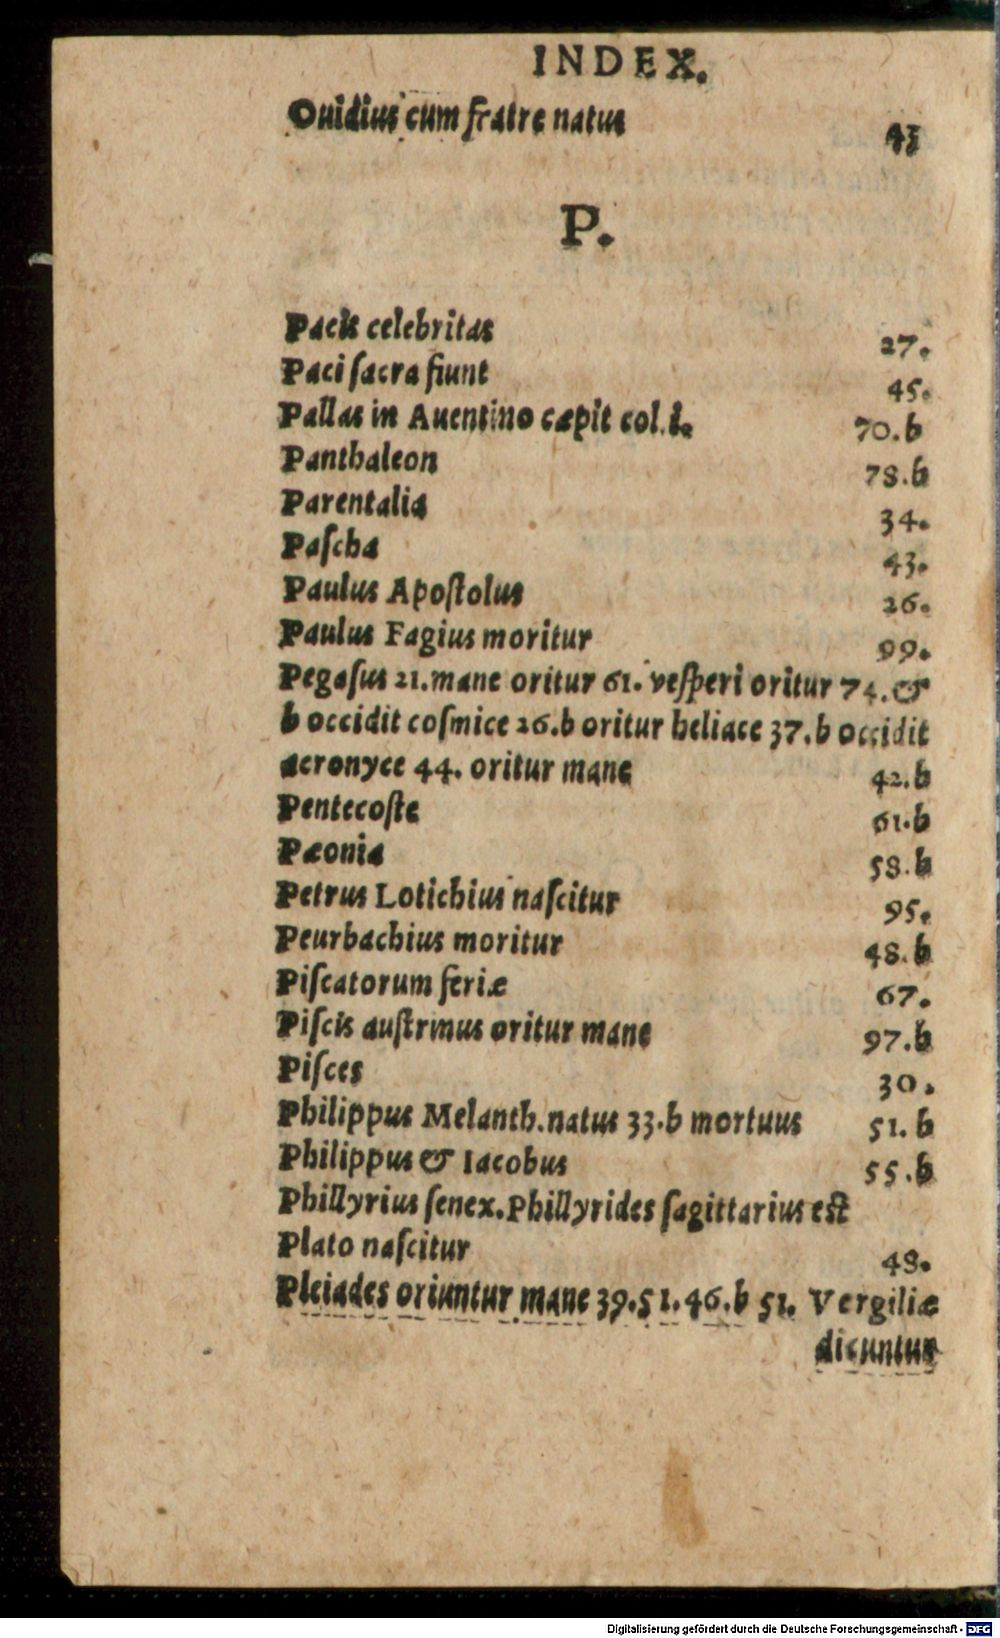 INDEX.
Ouidius cum fratre natus 43
P.
Pacis celebritas 27.
Paci ſacra fiunt 45.
Pallas in Auentino cæpit col.i. 70.b
Panthaleon 78.b
Parentalia 34.
Paſcha 43.
Paulus Apoſtolus 26.
Paulus Fagius moritur 99.
Pegaſus 21.mane oritur 61. veſperi oritur 74.&
b occidit coſmice 26.b oritur heliace 37.b occidit
acronyce 44. oritur mane 42.b
Pentecoſte 61.b
Pæonia 58.b
Petrus Lotichius naſcitur 95.
Peurbachius moritur 48.b
Piſcatorum feriæ 67.
Piſcis auſtrinus oritur mane 97.b
Piſces 30.
Philippus Melanth.natus 33.b mortuus 51.b
Philippus & Iacobus 55.b
Phillyrius ſenex.Phillyrides ſagittarius eſt
Plato naſcitur 48.
Pleiades oriuntur mane 39.51.46.b 51. Vergiliæ
dicuntur
Digitalisierung gefördert durch die Deutsche Forschungsgemeinschaft - DFG